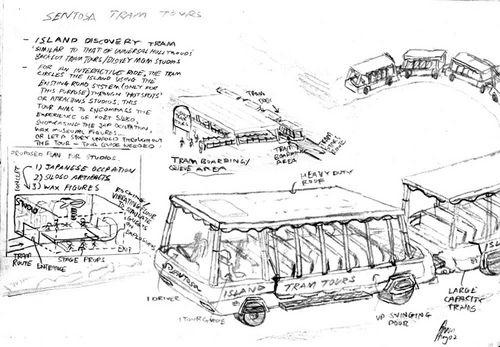 SENTOSA TRAM TOURS
- ISLAND DISCOVERY TRAM
SIMILAR TO THAT OF UNIVERSAL HOLLYWOOD'S
BACKLOT TRAM TOURS/DISNEY MGM STUDIOS
- FOR AN INTERACTIVE RIDE, THE TRAM
CIRCLES THE ISLAND USING THE
EXISTING ROAD SYSTEM (ONLY FOR
THIS PURPOSE) THROUGH 'HOTSPOTS'
OR STUDIOS. THIS
TOUR AIMS TO ENCOMPASS THE
EXPERIENCE OF FORT SILOSO,
SHOWCASING THE JAP OCCUPATION,
WAX MUSEUM FIGURES
OR LET A STORY UNFOLD THROUGHOUT
THE TOUR - TOUR GUIDE NEEDED
PROPOSED PLAN FOR STUDIOS
1) JAPANESE OCCUPATION
2) SILOSO ARTIFACTS
3) WAX FIGURES
STUDIO
TRAM
ROUTE
ENTRANCE
STAGE PROPS
EXIT
VIBRATING FLOOR
TRAM
TRAM
BOARDING
AREA
TRAM BOARDING/
QUEUE AREA
HEAVY DUTY
ROOF
SENTOSA
ISLAND TRAM TOURS
1 DRIVER
1 TOUR GUIDE
UP SWINGING
DOOR
LARGE
CAPACITY
TRAMS